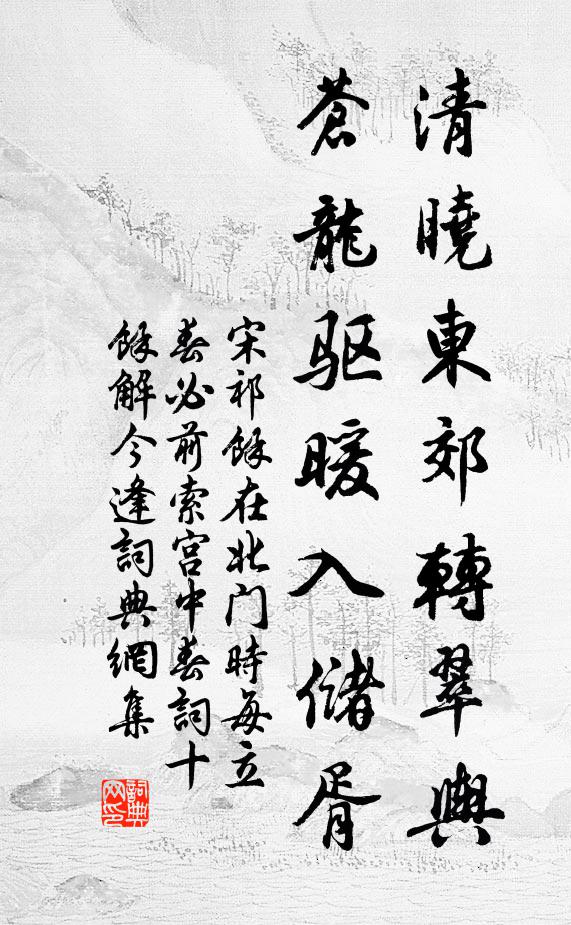 清曉東郊轉翠輿
蒼龍驱暖入储胥
宋祁餘在北门時每立
春必前索宫中春詞十
餘解今逢詞典網集
詞典网印